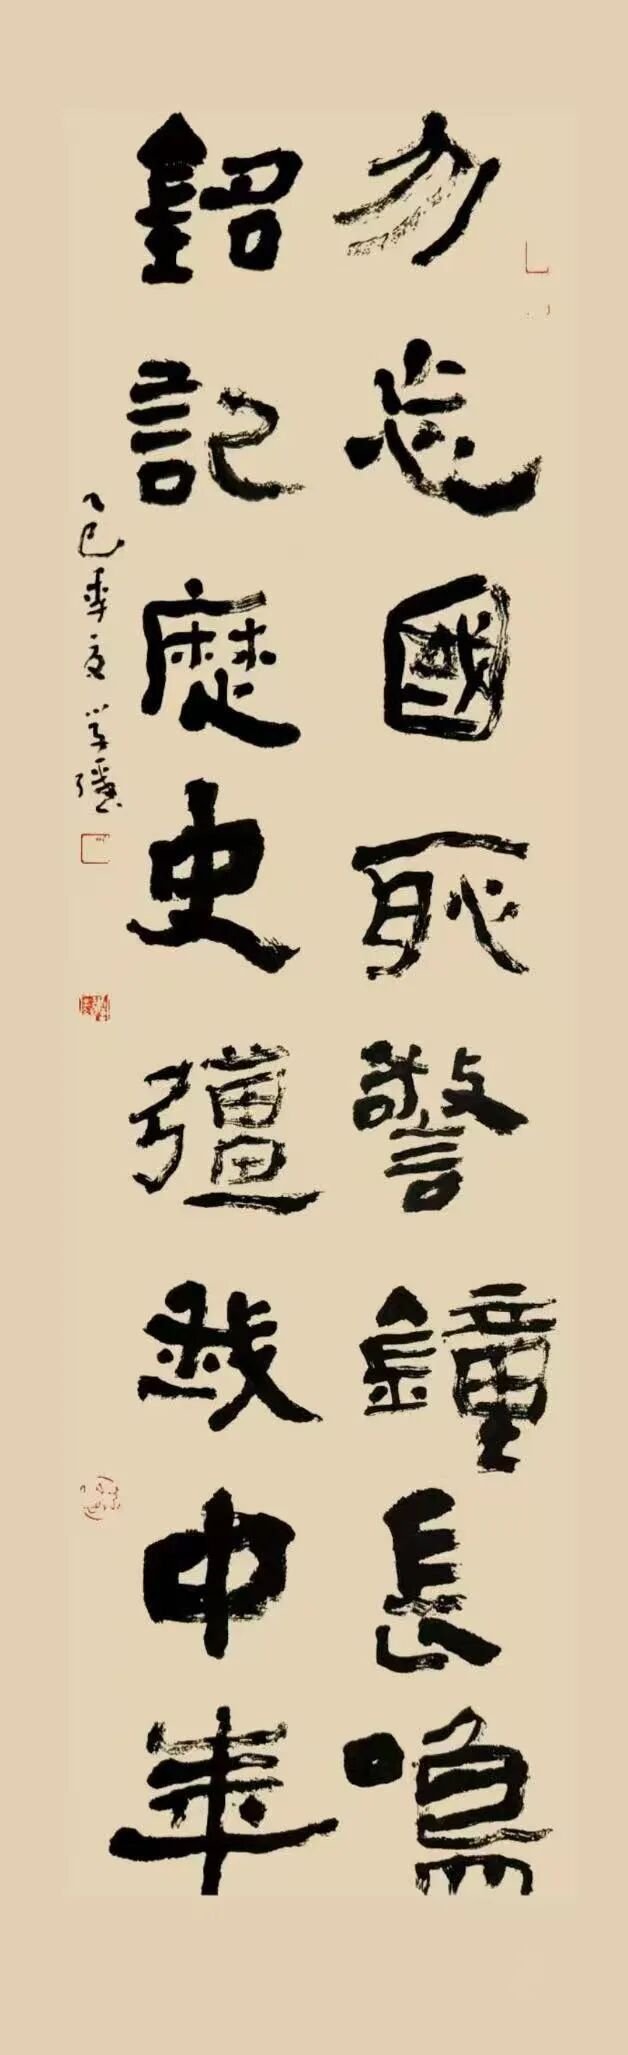 勿忘國恥警鐘長鳴
銘記歷史彊我中華
乙巳季夏